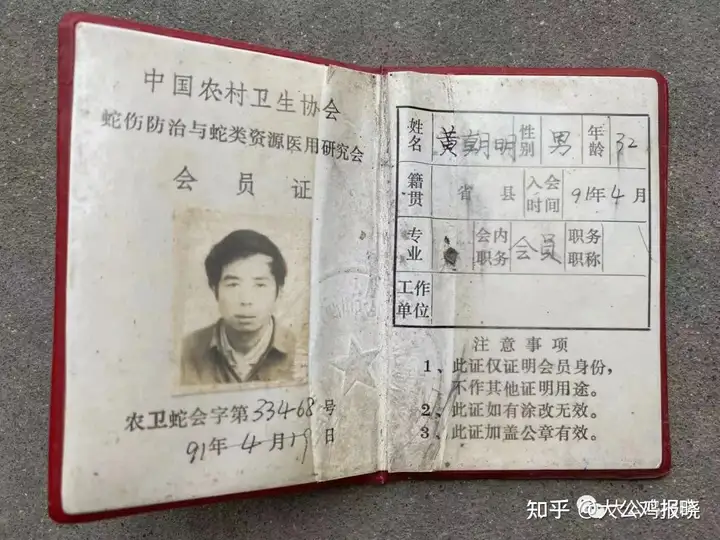 中国农村卫生协会
蛇伤防治与蛇类资源医用研究会
会员证
农卫蛇会字第33468号
91年4月19日
姓名 黄朝明 性别 男 年龄 32
籍贯 省 县 入会时间 91年4月
专业 会内职务 会员 职务职称
工作单位
注意事项
1、此证仅证明会员身份，
不作其他证明用途。
2、此证如有涂改无效。
3、此证加盖公章有效。
知乎 @大公鸡报晓